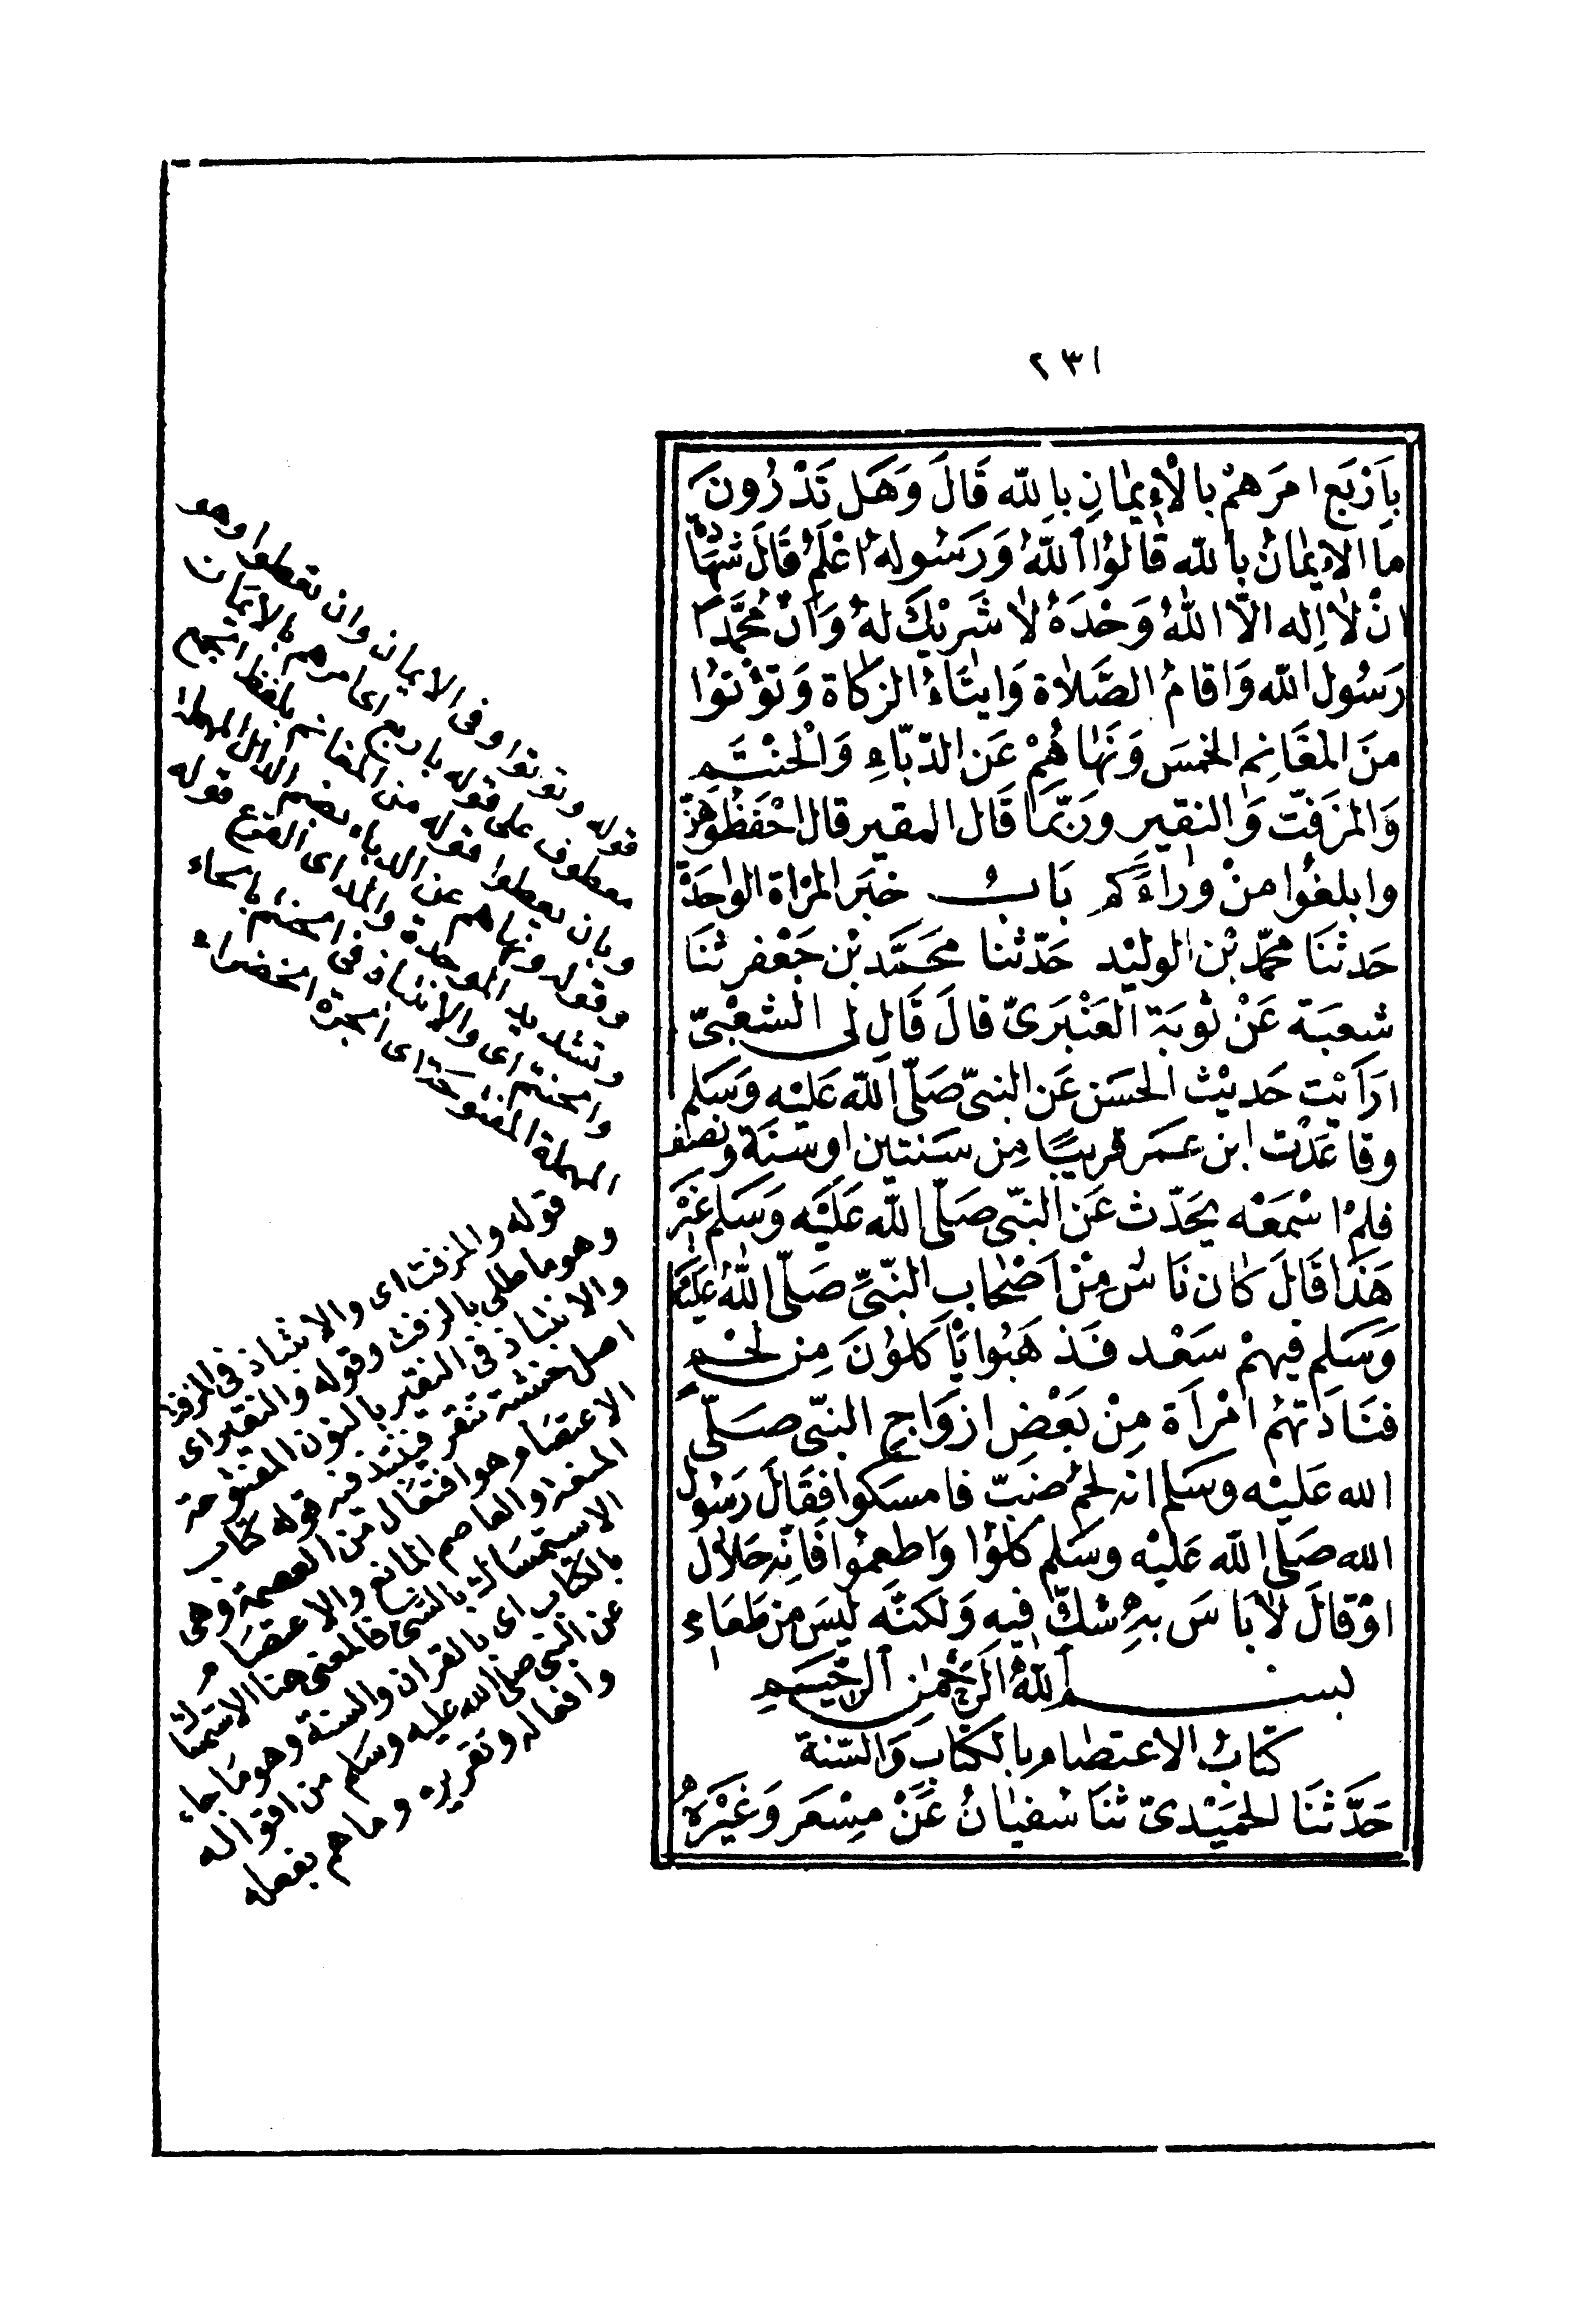 ٢٣١
بِاَرْبَع اَمَرَهمْ بالْاِيمٰانِ بِالله قَالَ وَهَل تَدْرُونَ
ما الاِيمٰانُ بالله قٰالوُا اَللّٰهُ وَرَسُوله اَعْلَمُ قَالَ شهَادَة
انْ لٰا اِله الّا اللّٰهُ وَحْدَهُ لٰا شَرِيْكَ لهُ وَانّ محَمَّداً
رَسُول الله وَاقامُ الصَّلاٰة وَايتَاءُ الزكَاة وَتؤْتوُا
منَ المغَانِم الخمسَ وَنَهٰاهُمْ عَن الدبّاءِ وَالْحنْتَم
وَالمزَفّت وَالنقِير وَربّمَا قَال المقير قال احْفَظُوهُنّ
وابلغُوا منْ وَرٰاءَكم بَابُ خبَر المرْاة الوٰاحدَة
حَدثنَا محمّد بْن الوليْد حَدّثنا محَمَّد بْن جَعْفر ثنَا
شعبَة عَنْ تَوبَة العَنْبَرىّ قالَ قَال لى الشعْبىّ
ارَاَيْت حَديْث الحسَن عَن النبىّ صَلّى اللّه عَليْه وَسَلم
وقاعَدْت ابن عمَر قريبًا مِن سَنتين اوسَنَة ونصْف
فلمْ اسْمَعْه يحَدّث عَن النبّى صَلّى الله عَلَيْه وَسَلم غيْر
هَذا قَالَ كٰان نَاسٌ مِنْ اَصْحٰابِ النّبىِّ صَلّى اللّٰهُ عَليْه
وَسَلم فيهمْ سَعْد فَذهَبُوا يَأكلوُنَ مِن لَحْمٍ
فنَادَتهمُ امْرأَة مِنْ بَعْض ازوَاج النبّى صَلّى
الله عَليْه وسَلم انه لحمُ ضبّ فامسَكوا فقَالَ رَسُول
الله صَلى الله عَليْه وسَلم كلوُا وَاطعمُوا فَانّه حَلاٰل
اوْ قالَ لاٰ بَاسَ بهِ شكّ فيهِ وَلكنّه ليسَ من طعَامى
بسم اللّٰهُ الرَحْمٰن الرَحيم
كتابُ الاعتصٰام بالكتٰابِ وَالسّنة
حَدَّثنَا الحميْدىّ ثنَا سُفيٰانُ عَنْ مِسْعَر وَغيْرَه
قوله وتؤتوا وفى الايمان وان تعطوا وهو
معطوف على قوله باربع اى امرهم بالايمان
وبان يعطوا قوله من المغانم بلفظ الجمع
وقوله ونهاهم عن الدباء بضم الدال المهملة
وتشديد الموحدة والمد اى القرع قوله
والحنتم اى والانتباذ فى الحنتم بالحاء
المهملة المفتوحة اى الجرة الخضراء
قوله والمزفت اى والانتباذ فى المزفت
وهو ما طلى بالزفت وقوله والنقير اى
والانتباذ فى النقير بالنون المفتوحة
اصل خشبة تنقر فينتبذ فيه قوله كتاب
الاعتصام وهو افتعال من العصمة وهى
المنعه والعاصم المانع والاعتصام
الاستمساك بالشى فالمعنى هنا الاستمساك
بالكتاب اى بالقران والسنة وهو ما جاء
عن النبى صلى الله عليه وسلم من اقواله
وافعاله وتقريره وما هم بفعله